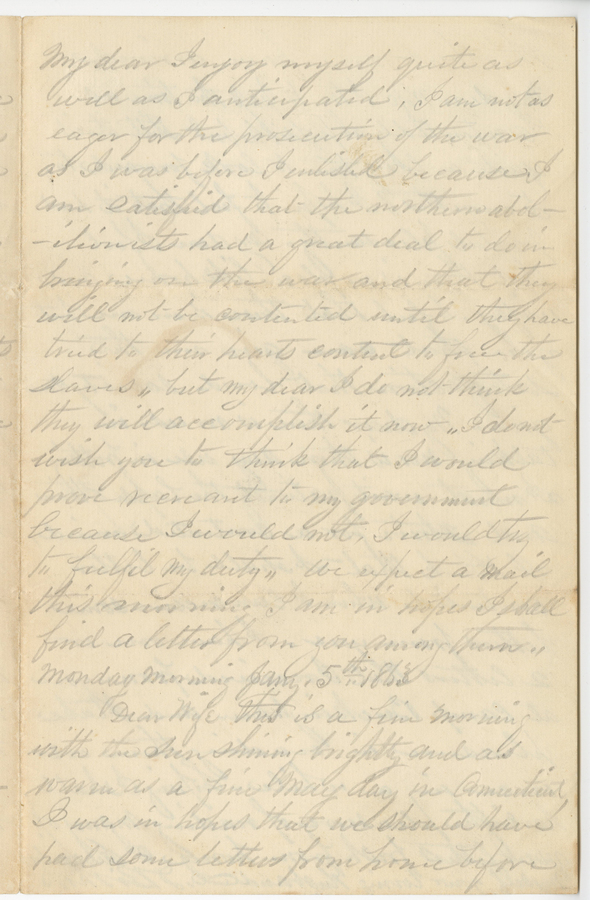 My dear I enjoy myself quite as
well as I anticipated, I am not as
eager for the prosecution of the war
as I was before I enlisted because I
am satisfied that the northern abol-
-itionists had a great deal to do in
bringing on the war and that they
will not be contented until they have
tried to their hearts content to free the
slaves,, but my dear I do not think
they will accomplish it now ,,I do not
wish you to think that I would
prove recreant to my government
because I would not, I would try
to fulfil my duty,, We expect a Mail
this morning I am in hopes I shall
find a letter from you among them,,
Monday Morning Jany, 5th 1863
Dear Wife This is a fine morning
with the sun shining brightly and as
warm as a fine May day in Connecticut
I was in hopes that we should have
had some letters from home before